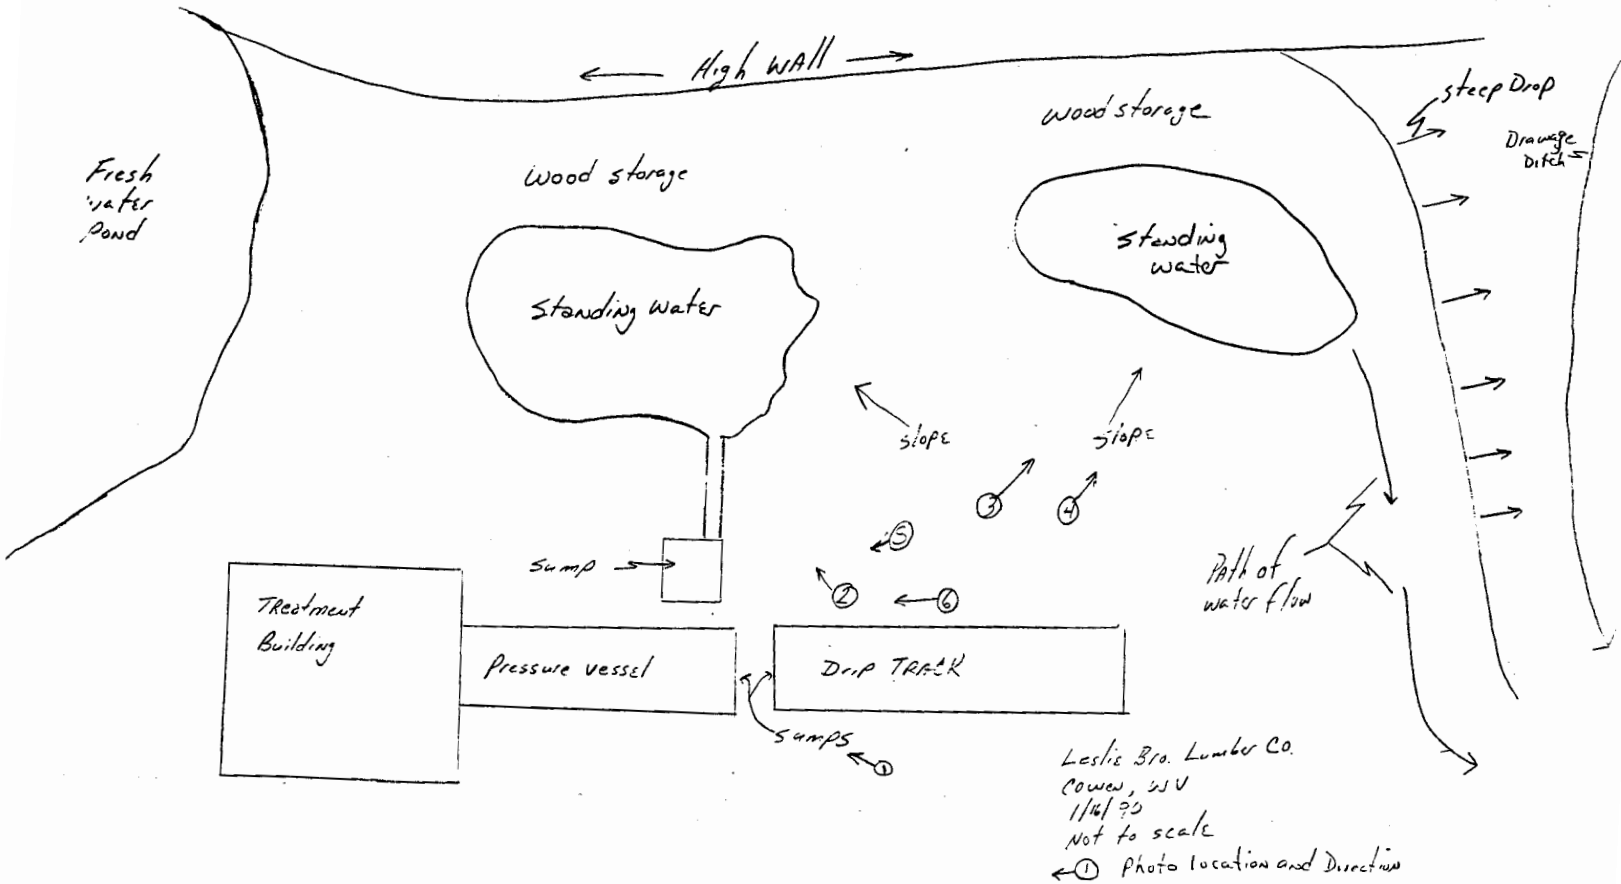 High WALL
steep Drop
Drawage
Ditch
wood storage
Fresh
water
Pond
wood storage
Standing
water
Standing water
slope
slope
3
4
5
Sump
2
6
Path of
water flow
Treatment
Building
Pressure vessel
Drip TRACK
sumps
1
Leslie Bro. Lumber Co.
Cowen, WV
1/16/
Not to scale
1 Photo location and Direction